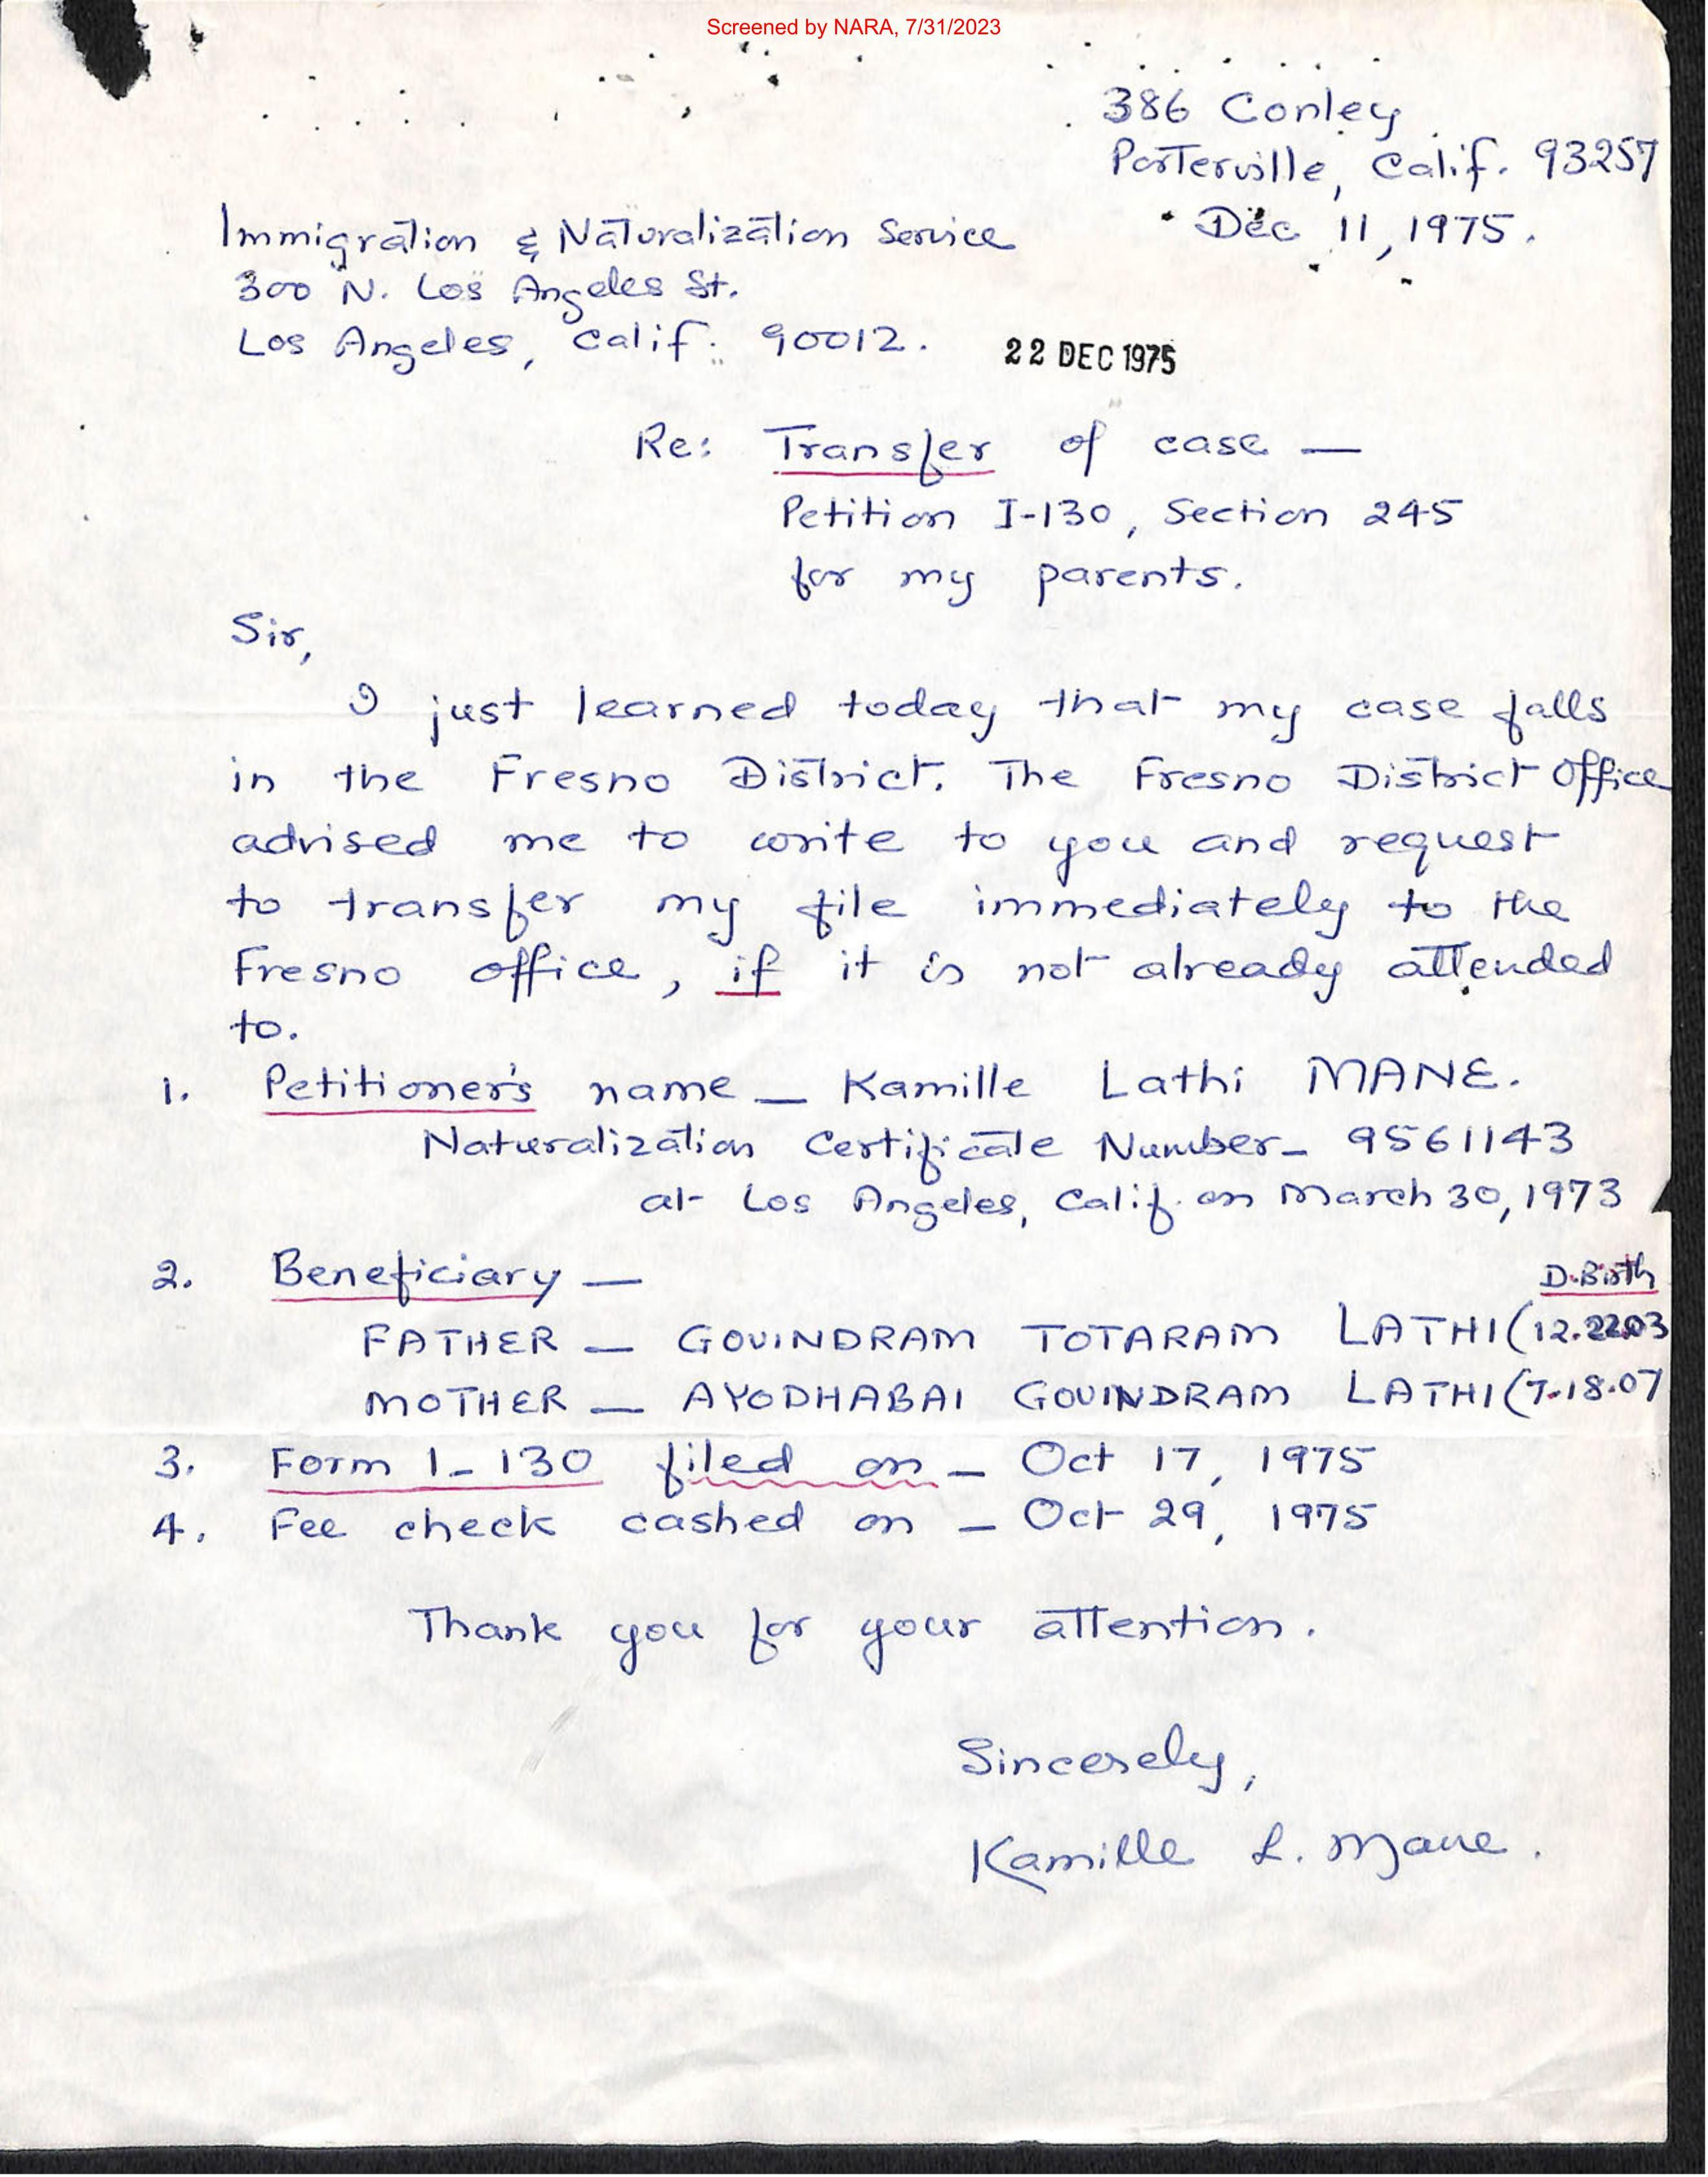 Screened by NARA, 7/31/2023
386 Conley
Porterville, Calif. 93257
Dec 11, 1975.
Immigration & Naturalization Service
300 N. Los Angeles St.
Los Angeles, Calif. 90012.
22 DEC 1975
Re: Transfer of case —
Petition I-130, Section 245
for my parents.
Sir,
I just learned today that my case falls
in the Fresno District. The Fresno District Office
advised me to write to you and request
to transfer my file immediately to the
Fresno office, if it is not already attended
to.
1. Petitioner's name — Kamille Lathi MANE.
Naturalization Certificate Number - 9561143
at Los Angeles, Calif. on March 30, 1973
2. Beneficiary —
D.Birth
FATHER — GOVINDRAM TOTARAM LATHI (12.22.03
MOTHER — AYODHABAI GOVINDRAM LATHI (7.18.07
3. Form I-130 filed on — Oct 17, 1975
4. Fee check cashed on — Oct 29, 1975
Thank you for your attention.
Sincerely,
Kamille L. Mane.